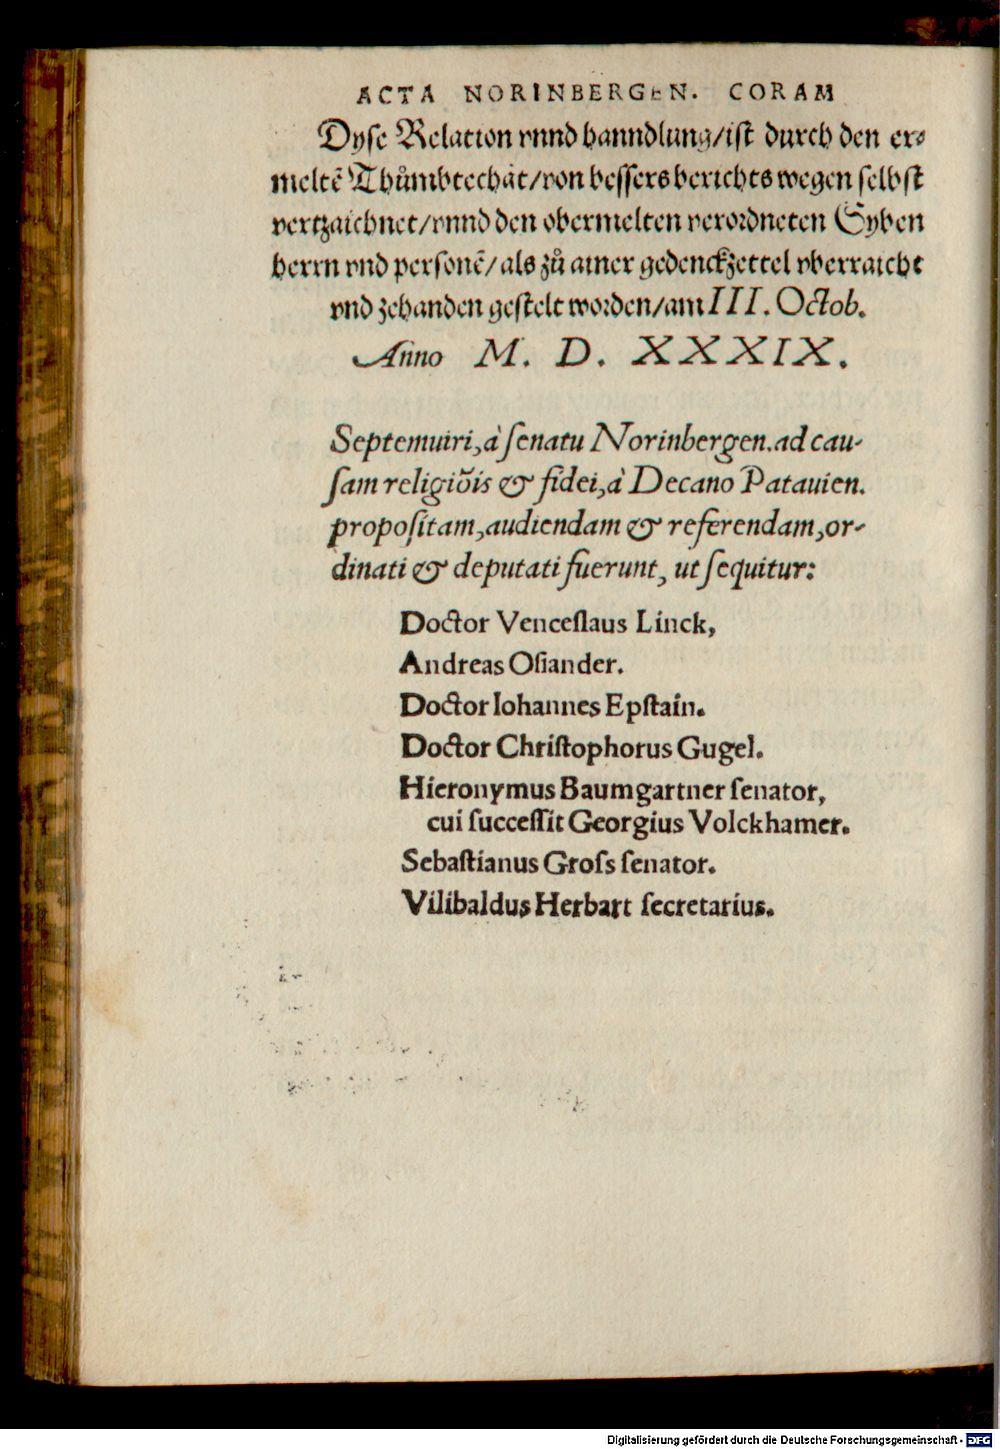 ACTA NORINBERGEN. CORAM
Dyse Relation vnnd hanndlung/ist durch den er⸗
meltē Thůmbtechāt/von bessers berichts wegen selbst
vertzaichnet/vnnd den obermelten verordneten Syben
herrn vnd personē/als zů ainer gedenckzettel vberraicht
vnd zehanden gestelt worden/am III. Octob.
Anno M. D. XXXIX.
Septemuiri, à ſenatu Norinbergen. ad cau-
ſam religiōis & fidei, à Decano Patauien.
propoſitam, audiendam & referendam, or-
dinati & deputati fuerunt, ut ſequitur:
Doctor Venceſlaus Linck,
Andreas Oſiander.
Doctor Iohannes Epſtain.
Doctor Chriſtophorus Gugel.
Hieronymus Baumgartner ſenator,
cui ſucceſſit Georgius Volckhamer.
Sebaſtianus Groſs ſenator.
Vilibaldus Herbart ſecretarius.
Digitalisierung gefördert durch die Deutsche Forschungsgemeinschaft - DFG